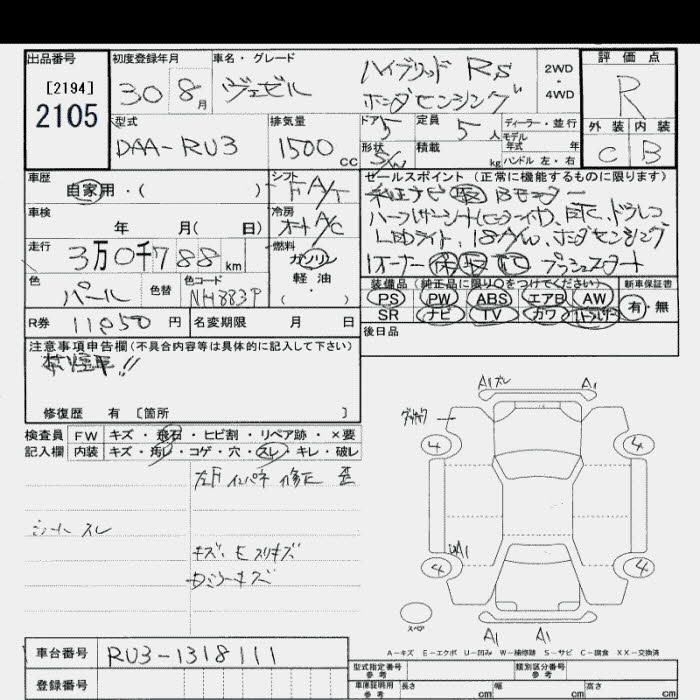 出品番号
[2194]
2105
初度登録年月
30 8月
車名・グレード
ヴェゼル
ハイブリッド RS
ホンダセンシング
2WD
・
4WD
評価点
R
外装 内装
C B
型式
DAA-RU3
排気量
1500 cc
ドア 5
定員 5人
ディーラー・並行
モデル年式 年
形状 S/W
積載 kg
ハンドル 左・右
車歴
自家用・( )
シフト
F A/T
車検
年 月( 日)
冷房
オート A/C
走行
3万0千788km
燃料
ガソリン
軽油
( )
色
パール
色替
色コード
NH883P
R券 11850 円
名変期限 月 日
セールスポイント (正常に機能するものに限ります)
純正ナビ Bモニター
ハーフレザーシート(ヒーター付)、ETC、ドラレコ
LEDライト、18AW、ホンダセンシング
1オーナー プッシュスタート
装備品(純正品に限り〇をつけてください)
PS PW ABS エアB AW
SR ナビ TV カワ
新車保証書
有・無
後日品
注意事項申告欄(不具合内容等は具体的に記入して下さい)
禁煙車!!
修復歴 有 〔箇所 〕
検査員記入欄
FW キズ・飛石・ヒビ割・リペア跡・×要
内装 キズ・汚レ・コゲ・穴・スレ・キレ・破レ
左F インパネ 修正 歪
シート スレ
キズ、E スリキズ
ミラーキズ
A1ズレ A1
4 4
4 4
A1 A1
スペア
A-キズ E-エクボ U-凹み W-補修跡 S-サビ C-腐食 XX-交換済
車台番号
RU3-1318111
登録番号
型式指定番号 参考
類別区分番号 参考
車庫証明用 参考
長さ cm 幅 cm 高さ cm